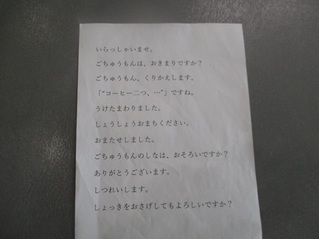 いらっしゃいませ。
ごちゅうもんは、おきまりですか？
ごちゅうもん、くりかえします。
「“コーヒー二つ、…”」ですね。
うけたまわりました。
しょうしょうおまちください。
おまたせしました。
ごちゅうもんのしなは、おそろいですか？
ありがとうございます。
しつれいします。
しょっきをおさげしてもよろしいですか？